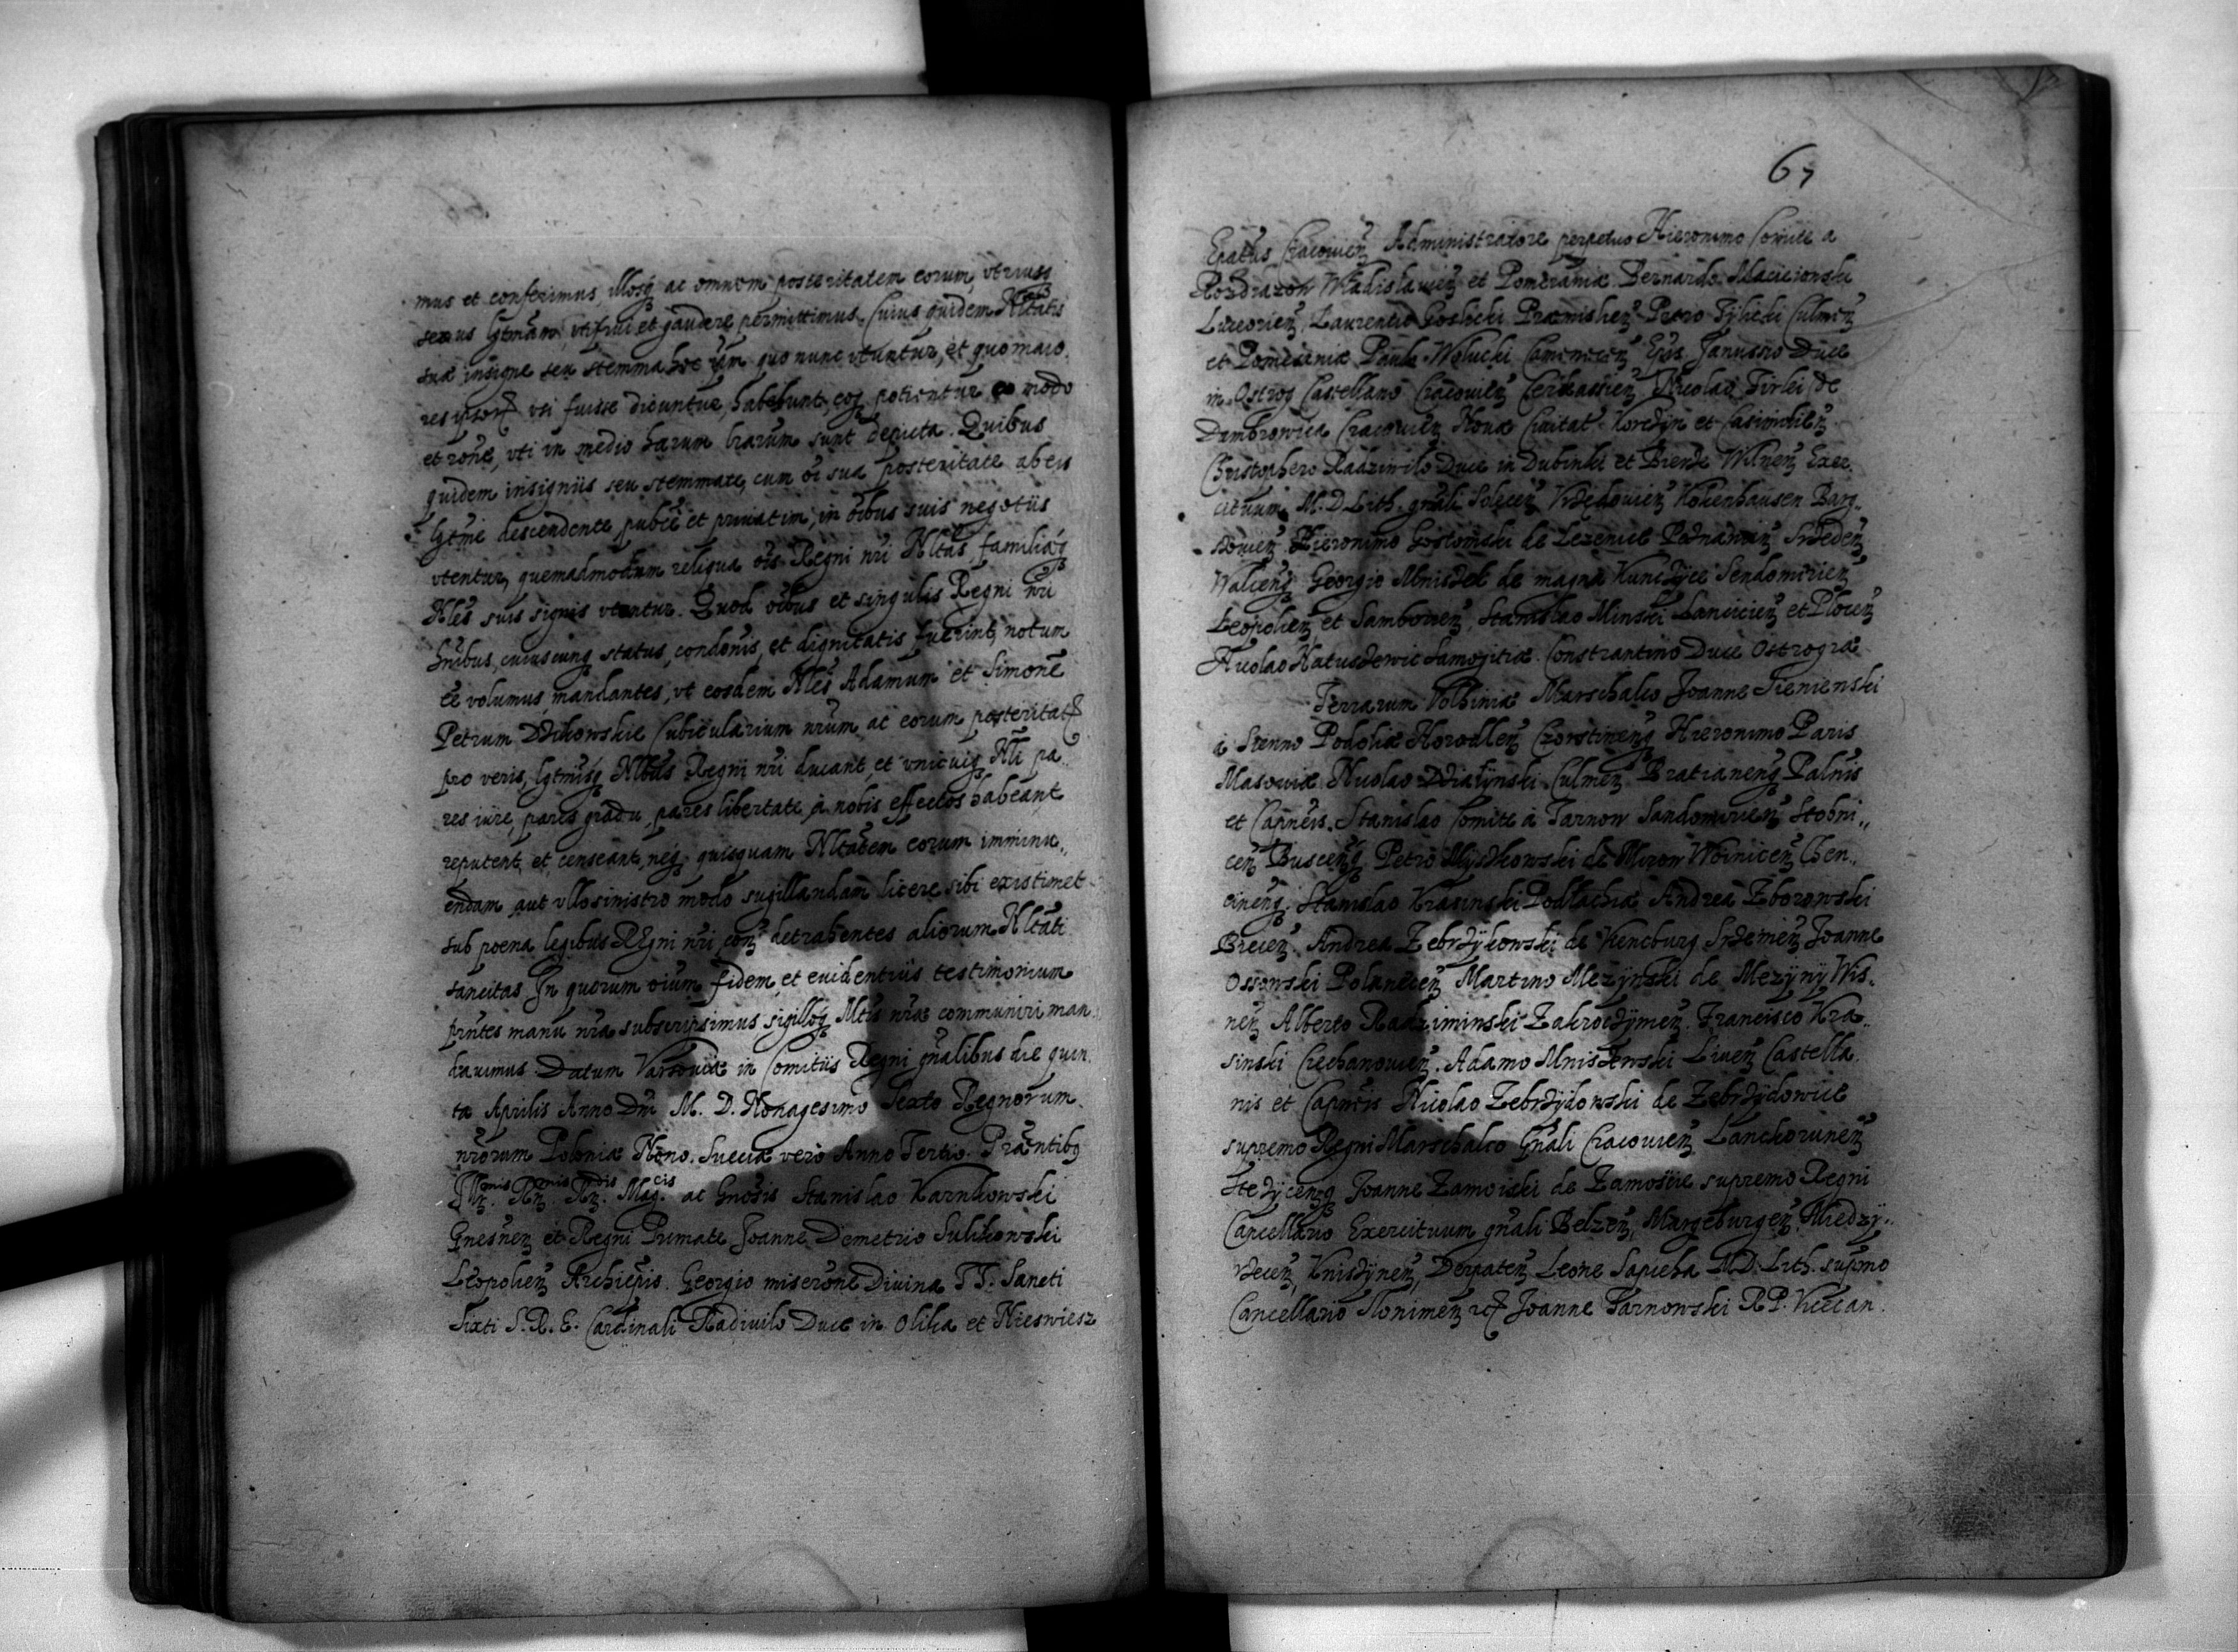 mus et conferimus, illosq ac omnem posteritatem eorum, vtriusq
sexus lgtmam, vti frui et gaudere permittimus. Cuius quidem Nltatis
suæ insigne seu stemma hoc iam quo nunc vtuntur, et quo maio
res ipsor vsi fuisse dicuntur, habebunt, eoq potientur eo modo
et rone, vti in medio harum lrarum sunt depicta. Quibus
quidem insigniis seu stemmate, cum oi sua posteritate ab eis
lgtme descendente, publice et priuatim, in oibus suis negotiis
vtentur, quemadmodum reliqua ois Regni nri Nltas, familiæq
Nles suis signis vtentur. Quod oibus et singulis Regni nri
hnibus, cuiuscunq status, condonis, et dignitatis fuerint, notum
ee volumus, mandantes, vt eosdem Nles Adamum et Simone
Petrum Dzikowskie Cubicularium nrum, ac eorum posteritat
pro veris, lgtmisq Nlbus Regni nri ducant, et vnicuiq Nli pa
res iure, pares gradu, pares libertate, à nobis effectos habeant
reputent, et censeant, neq quisquam Nltatem eorum imminu„
endam aut vllo sinistro modo sugillandam licere sibi existimet
sub poena legibus Regni nri con detrahentes aliorum Nltati
sancitas. In quorum oium fidem, et euidentius testimonium
pntes manu nra subscripsimus, sigilloq Mtis nræ communiri man
dauimus. Datum Varsouiæ in Comitiis Regni gnalibus die quin
ta Aprilis Anno Dni M. D. Nonagesimo Sexto Regnorum
nrorum Poloniæ Nono. Sueciæ vero Anno Tertio. Præntibq
Illr.mis Rn.mis Rn.dis Mag.cis ac Gnosis Stanislao Karnkowski
Gnesnen et Regni Primate Joanne Demetrio Sulikowski
Leopolien Archiepis. Georgio miserone Diuina TT. Sancti
Sixti S. R. E. Cardinali Radiuilo Duce in Olika et Nieswiesz
67
Epatus Cracouien Administratore perpetuo Hieronimo Comite a
Rozdrazow Wladislauien et Pomeraniæ. Bernardo Macieionski
Luceorien, Laurentio Goslicki Præmislien Petro Tylicki Culmen
et Pomesaniæ Paulo Wolucki Camenecen Epis. Janussio Duce
in Ostrog Castellano Cracouien Cerkassien Nicolao Firlei de
Dambrowica Cracouien Nouæ Ciuitat Korczyn et Casimirien
Christophero Radziwilo Duce in Dubinki et Bierze Wilnen Exer
cituum M. D. Lith. gnali Solecen Vrzedouien Kokenhausen Barg„
Hieronimo Gostomski de Lezenice Poznanien Srzeden
Walcenq Georgio Mniszek de magna Kunczyce Sendomirien
Leopolien et Samborien, Stanislao Minski Lancicien et Plocen
Nicolao Naruszewic Samogitiæ. Constrantino Duce Ostrogiæ
Terrarum Volhiniæ Marschalco Joanne Sienienski
à Sienno Podoliæ Horodlen Czorstinenq Hieronimo Paris
Masouiæ Nicolao Dzialynski Culmen Bratianenq Palnis
et Capneis. Stanislao Comite à Tarnow Sandomirien Stobni„
cen Buscenq Petro Myszkowski de Mirow Woinicen Chen„
cinenq. Stanislao Krasinski Podlachiæ Andrea Zborowski
Brecen. Andrea Zebrzykowski de Vieneburg Srzemen Joanne
Ossowski Polanecen Martino Mezynski de Mezyny Wis„
nen Alberto Radziminski Zakroczymen. Francisco Kra„
sinski Ciechanouien. Adamo Mniszewski Liuen Castella
nis et Capneis Nicolao Zebrzydowski de Zebrzydowice
supremo Regni Marschalco Gnali Cracouien Lanckorunen
Joanne Zamoiski de Zamoście supremo Regni
Cancellario Exercituum gnali Belzen, Margeburgen, Miedzy„
Knisdynen, Derpaten Leone Sapieha M. D. Lith. supmo
Cancellario Slonimen Joanne Tarnowski R P. Vicecan